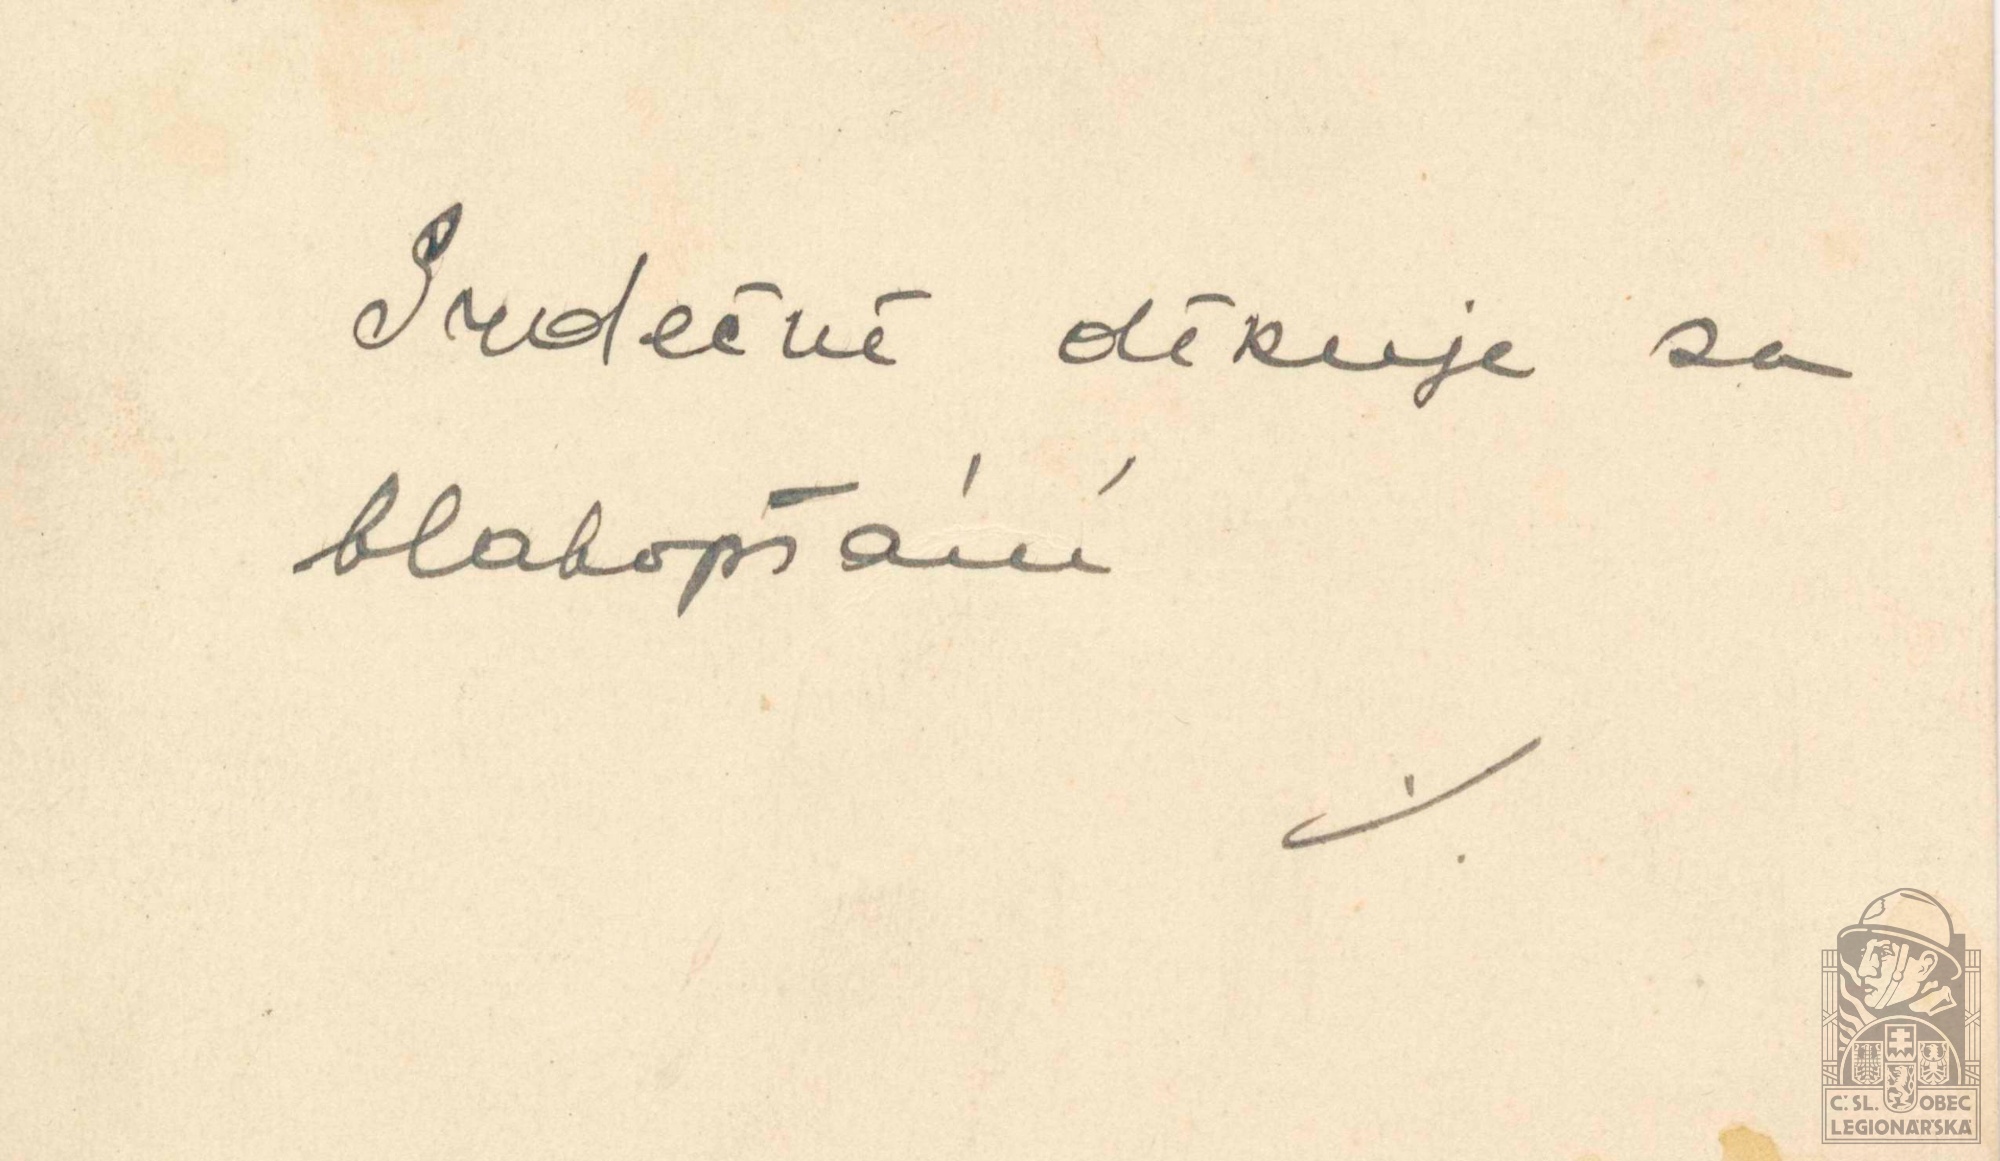 Srdečně děkuje za
blahopřání
Č.SL. OBEC
LEGIONÁŘSKÁ